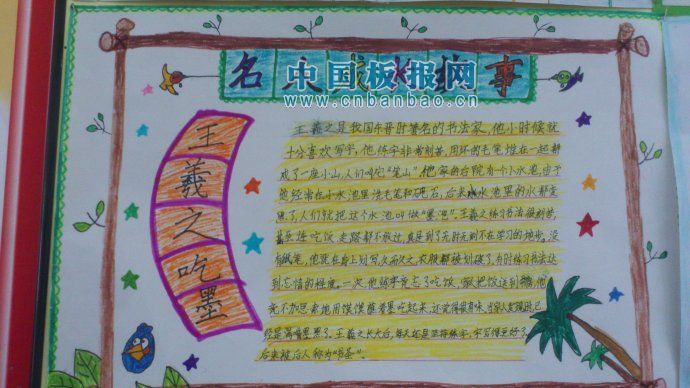 名人成长故事
中国板报网
www.cnbanbao.cn
王羲之吃墨
王羲之是我国东晋时著名的书法家，他小时候就
十分喜欢写字，他练字非常刻苦，用坏的毛笔堆在一起都
成了一座小山，人们叫它"笔山"，他家的后院有一个小水池，由于
他经常在小水池里洗毛笔和砚石，后来水池里的水都变
黑了，人们就把这个水池叫做"墨池"。王羲之练习书法很刻苦，
甚至连吃饭、走路都不放过，真是到了无时无刻不在学习的地步。没
有纸笔，他就在身上划写，久而久之，衣服都被划破了，有时练习书法达
到忘情的程度，一次，他练字竟忘了吃饭，家人把饭送到书房，他
竟不加思索地用馍馍蘸着墨吃起来，还觉得很有味，当家人发现时，已
经是满嘴墨黑了。王羲之长大后，每天还是坚持练字，字写得更好了，
后来被后人称为"书圣"。